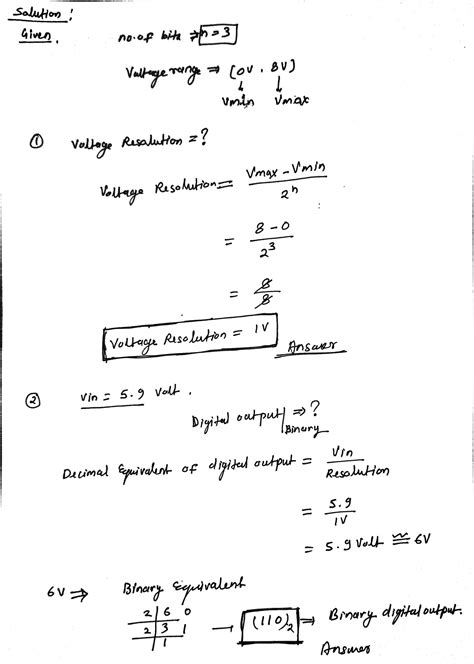 Solution :
Given,
no. of bits ⇒ n = 3
Voltage range ⇒ [0V, 8V]
↓ ↓
Vmin Vmax
① Voltage Resolution = ?
Voltage Resolution = Vmax - Vmin / 2^n
= 8 - 0 / 2^3
= 8 / 8
Voltage Resolution = 1V
Answer
② Vin = 5.9 Volt.
Digital output|Binary ⇒ ?
Decimal Equivalent of digital output = Vin / Resolution
= 5.9 / 1V
= 5.9 Volt ≅ 6V
6V ⇒ Binary Equivalent
2 | 6 0
2 | 3 1
1
→ (110)₂ → Binary digital output.
Answer